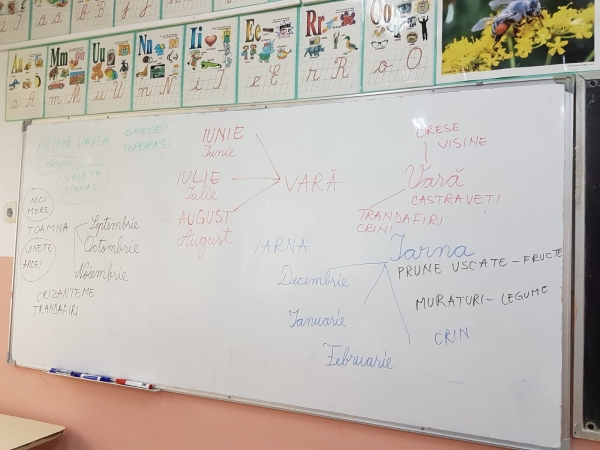 Aa
Mm
Uu
Nn
Ii
Ee
Rr
Oo
a A
m M
u U
n N
i I
e E
r R
o O
PRIMĂ VARA
GHIOCEI
TOPORAȘI
SALATA
SPANAC
NUCI
MERE
TOAMNA
Septembrie
Octombrie
Noiembrie
VINETE
ARDEI
CRIZANTEME
TRANDAFIRI
IUNIE
Iunie
IULIE
Iulie
AUGUST
August
VARĂ
CIRESE
VISINE
Vară
CASTRAVEȚI
TRANDAFIRI
CRINI
IARNA
Decembrie
Ianuarie
Februarie
Iarna
PRUNE USCATE - FRUCTE
MURATURI - LEGUME
CRIN